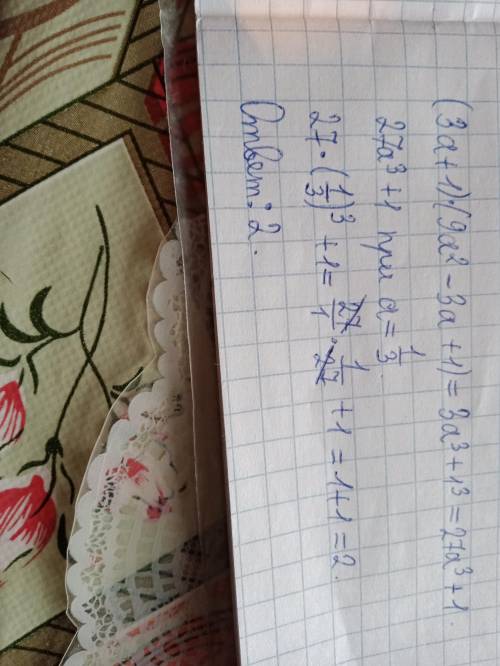 (3a+1)·(9a²-3a+1)=3a³+1³=27a³+1.
27a³+1 при a=1/3
27·(1/3)³+1=27/1·1/27+1=1+1=2.
Ответ: 2.